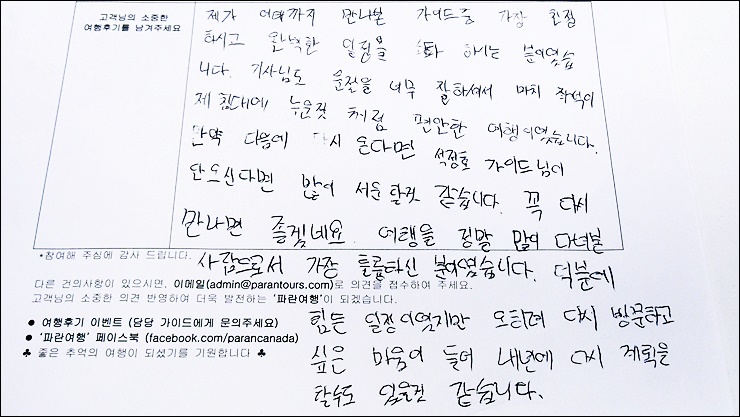 고객님의 소중한
여행후기를 남겨주세요
제가 여태까지 만나본 가이드중 가장 친절
하시고 완벽한 일정을 소화 하시는 분이였습
니다. 기사님도 운전을 너무 잘하셔서 마치 좌석이
제 침대에 누운것 처럼 편안한 여행이였습니다.
만약 다음에 다시 온다면 석정호 가이드님이
안오신다면 많이 서운할것 같습니다. 꼭 다시
만나면 좋겠네요. 여행을 정말 많이 다녀본
사람으로서 가장 훌륭하신 분이였습니다. 덕분에
힘든 일정이였지만 오히려 다시 방문하고
싶은 마음이 들어 내년에 다시 계획을
할수도 있을것 같습니다.
*참여해 주심에 감사 드립니다.
다른 건의사항이 있으시면, 이메일(admin@parantours.com)로 의견을 접수하여 주세요.
고객님의 소중한 의견 반영하여 더욱 발전하는 '파란여행'이 되겠습니다.
● 여행후기 이벤트 (담당 가이드에게 문의주세요)
● '파란여행' 페이스북 (facebook.com/parancanada)
♣ 좋은 추억의 여행이 되셨기를 기원합니다 ♣